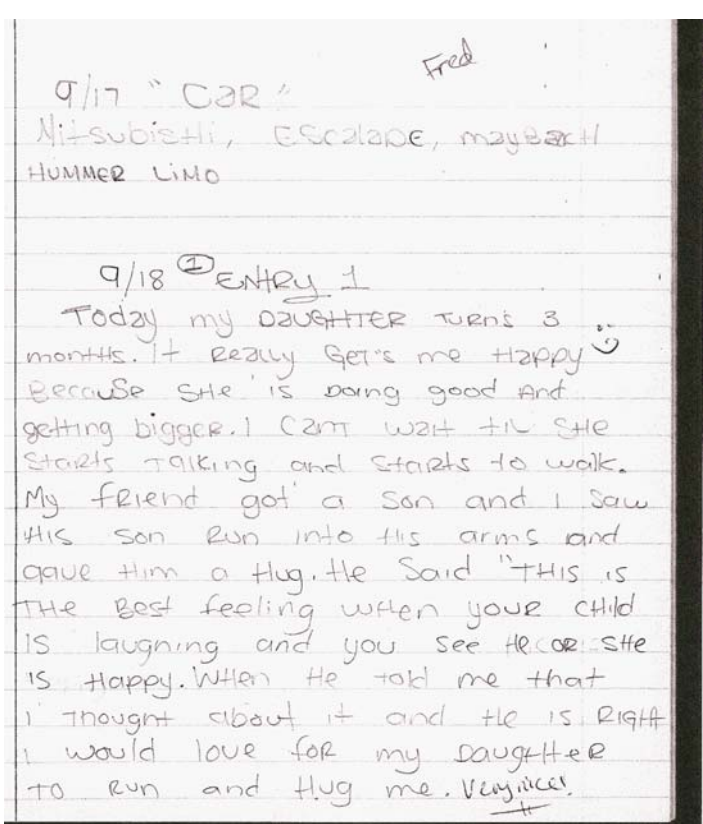 Fred
9/17 "Car"
Mitsubishi, Escalade, mayBach
HUMMER LiMO
9/18 ① ENtRy 1
Today my DaUGHTER TURNS 3
months. It Really Get's me Happy
Because SHe is Doing good And
getting bigger. I Can't wait til SHe
Starts Talking and Starts to walk.
My friend got a Son and I Saw
His son Run into His arms and
gave Him a Hug. He Said "THIS is
THe Best feeling wHen your CHild
is laughing and you see He or SHe
is Happy. WHen He told me that
i Thought about it and He is Right
i would love for my Daughter
to Run and Hug me. Very nice!